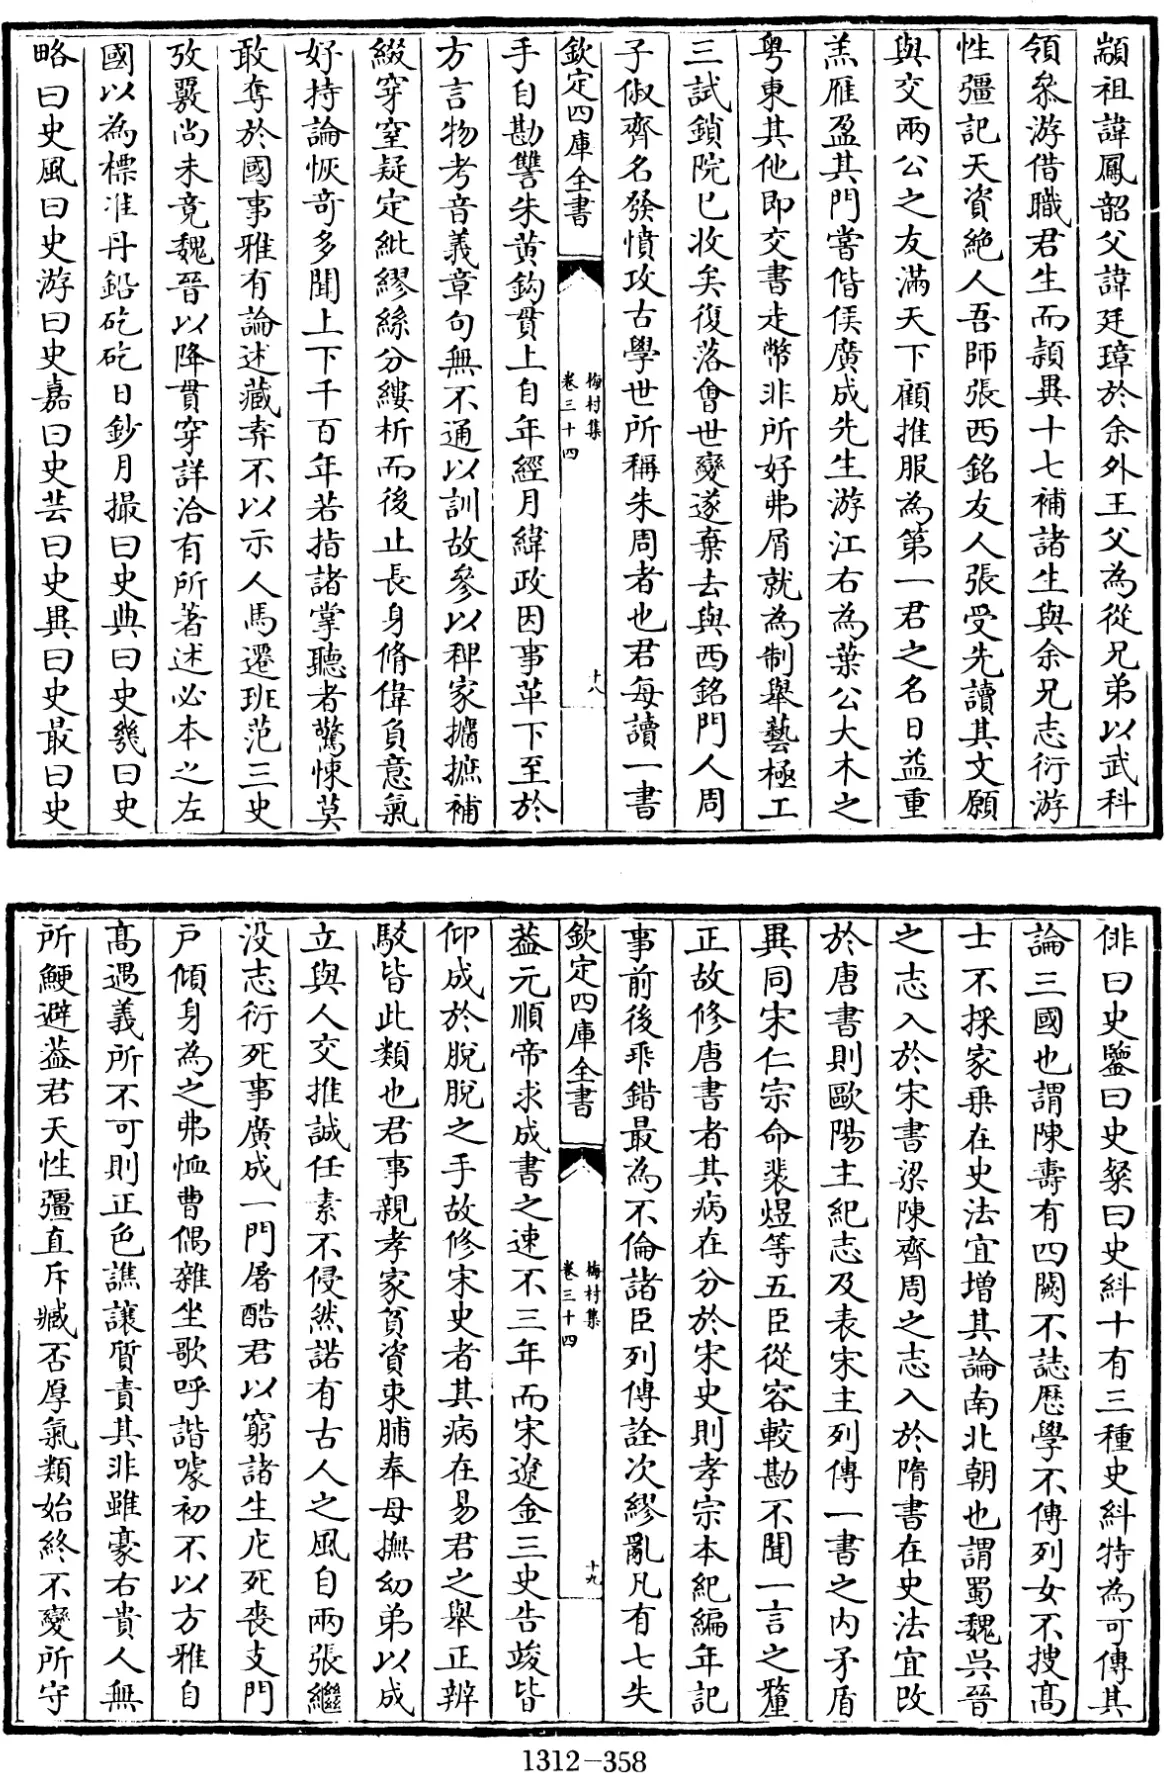 顓祖諱鳳韶父諱廷璋於余外王父為從兄弟以武科
領叅游借職君生而頴異十七補諸生與余兄志衍游
性彊記天資絶人吾師張西銘友人張受先讀其文願
與交兩公之友滿天下顧推服為第一君之名日益重
羔雁盈其門嘗偕侯廣成先生游江右為葉公大木之
粤東其他即交書走幣非所好弗屑就為制舉藝極工
三試鎖院已收矣復落會世變遂棄去與西銘門人周
子俶齊名發憤攻古學世所稱朱周者也君每讀一書
欽定四庫全書
梅村集
卷三十四
十八
手自勘讐朱黄鈎貫上自年經月緯政因事革下至於
方言物考音義章句無不通以訓故參以稗家摛摭補
綴穿窒疑定紕繆絲分縷析而後止長身脩偉負意氣
好持論恢竒多聞上下千百年若指諸掌聽者驚悚莫
敢奪於國事雅有論述藏弆不以示人馬遷班范三史
攷覈尚未竟魏晉以降貫穿詳洽有所著述必本之左
國以為標准丹鉛矻矻日鈔月撮曰史典曰史幾曰史
略曰史風曰史游曰史嘉曰史芸曰史異曰史最曰史
俳曰史鑒曰史粲曰史糾十有三種史糾特為可傳其
論三國也謂陳壽有四闕不誌歴學不傳列女不搜髙
士不採家乗在史法宜增其論南北朝也謂蜀魏吳晉
之志入於宋書梁陳齊周之志入於隋書在史法宜改
於唐書則歐陽主紀志及表宋主列傳一書之内矛盾
異同宋仁宗命裴煜等五臣從容較勘不聞一言之釐
正故修唐書者其病在分於宋史則孝宗本紀編年記
事前後乖錯最為不倫諸臣列傳詮次繆亂凡有七失
欽定四庫全書
梅村集
卷三十四
十九
葢元順帝求成書之速不三年而宋遼金三史告竣皆
仰成於脱脱之手故修宋史者其病在易君之舉正辨
駁皆此類也君事親孝家貧資束脯奉母撫幼弟以成
立與人交推誠任素不侵然諾有古人之風自兩張繼
没志衍死事廣成一門屠酷君以窮諸生庀死喪支門
戸傾身為之弗恤曹偶雜坐歌呼諧噱初不以方雅自
髙遇義所不可則正色譙讓質責其非雖豪右貴人無
所鯁避葢君天性彊直斥臧否厚氣類始終不變所守
1312-358